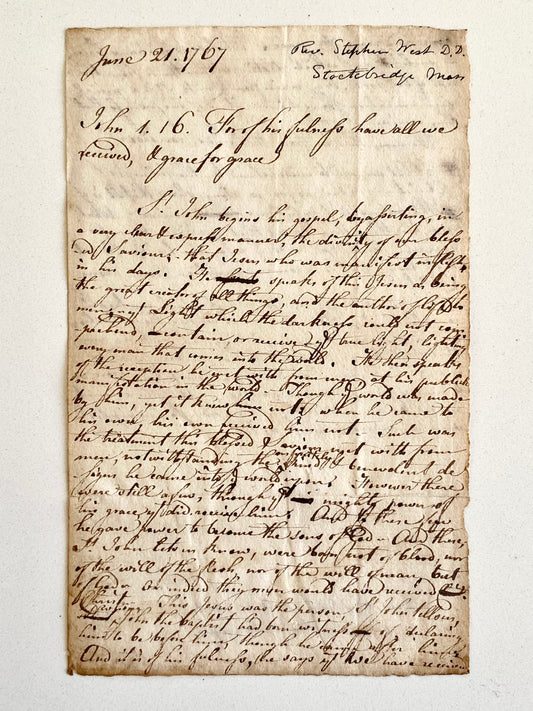 June 21. 1767
Rev. Stephen West D.D.
Stockbridge Mass
John 1. 16. For of his fulness have all we
received, & grace for grace
St. John begins his gospel, by asserting, in
a very clear & express manner, the divinity of our bless
ed Saviour; that Jesus who was manifest in flesh,
in his days. He speaks of this person as being
the great creator of all things, and the author of life
Light which the darkness could not com
contain or receive, y true light, light
every man that comes into the world. He then speaks
of the reception he met with from men at his publick
manifestation in the world. Though y world was made
by him, yet it knew him not; when he came to
his own, his own received him not. Such was
the treatment this blessed Saviour met with from
men, notwithstanding the kind & benevolent de
signs he came into y world upon. However there
were still a few, through y mighty power of
his grace y did receive him. And to these few
he gave power to become the sons of God — And these,
St. John lets us know, were born not of blood, nor
of the will of the flesh, nor of the will of man, but
of God — or indeed they never would have received
Christ. This Jesus was the person, St. John tells us,
John the baptist had born witness of, declaring
him to be before him, though he came after him
And it is of his fulness, he says y we have received